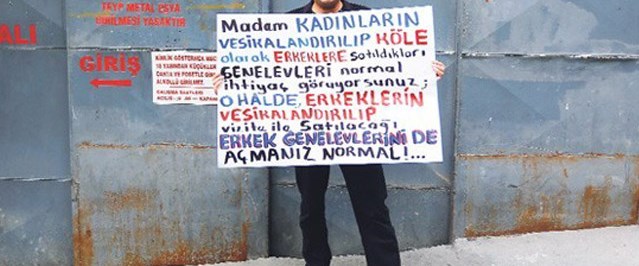 TEYP METAL PARA
GİRİLMESİ YASAKTIR
ALI
GİRİŞ
KİMLİK GÖSTERMEK
18 YAŞINDAN KÜÇÜKLER
ÇANTA VE POŞETLE GİRMEK
ALKOLLÜ GİRİLMEZ
Madam KADINLARIN
VESİKALANDIRILIP KÖLE
olarak ERKEKLERE Satıldıkları
GENELEVLERİ normal
ihtiyaç görüyorsunuz;
O HALDE, ERKEKLERİN
VESİKALANDIRILIP
vizite ile Satılacağı
ERKEK GENELEVLERİNİ DE
AÇMANIZ NORMAL!...